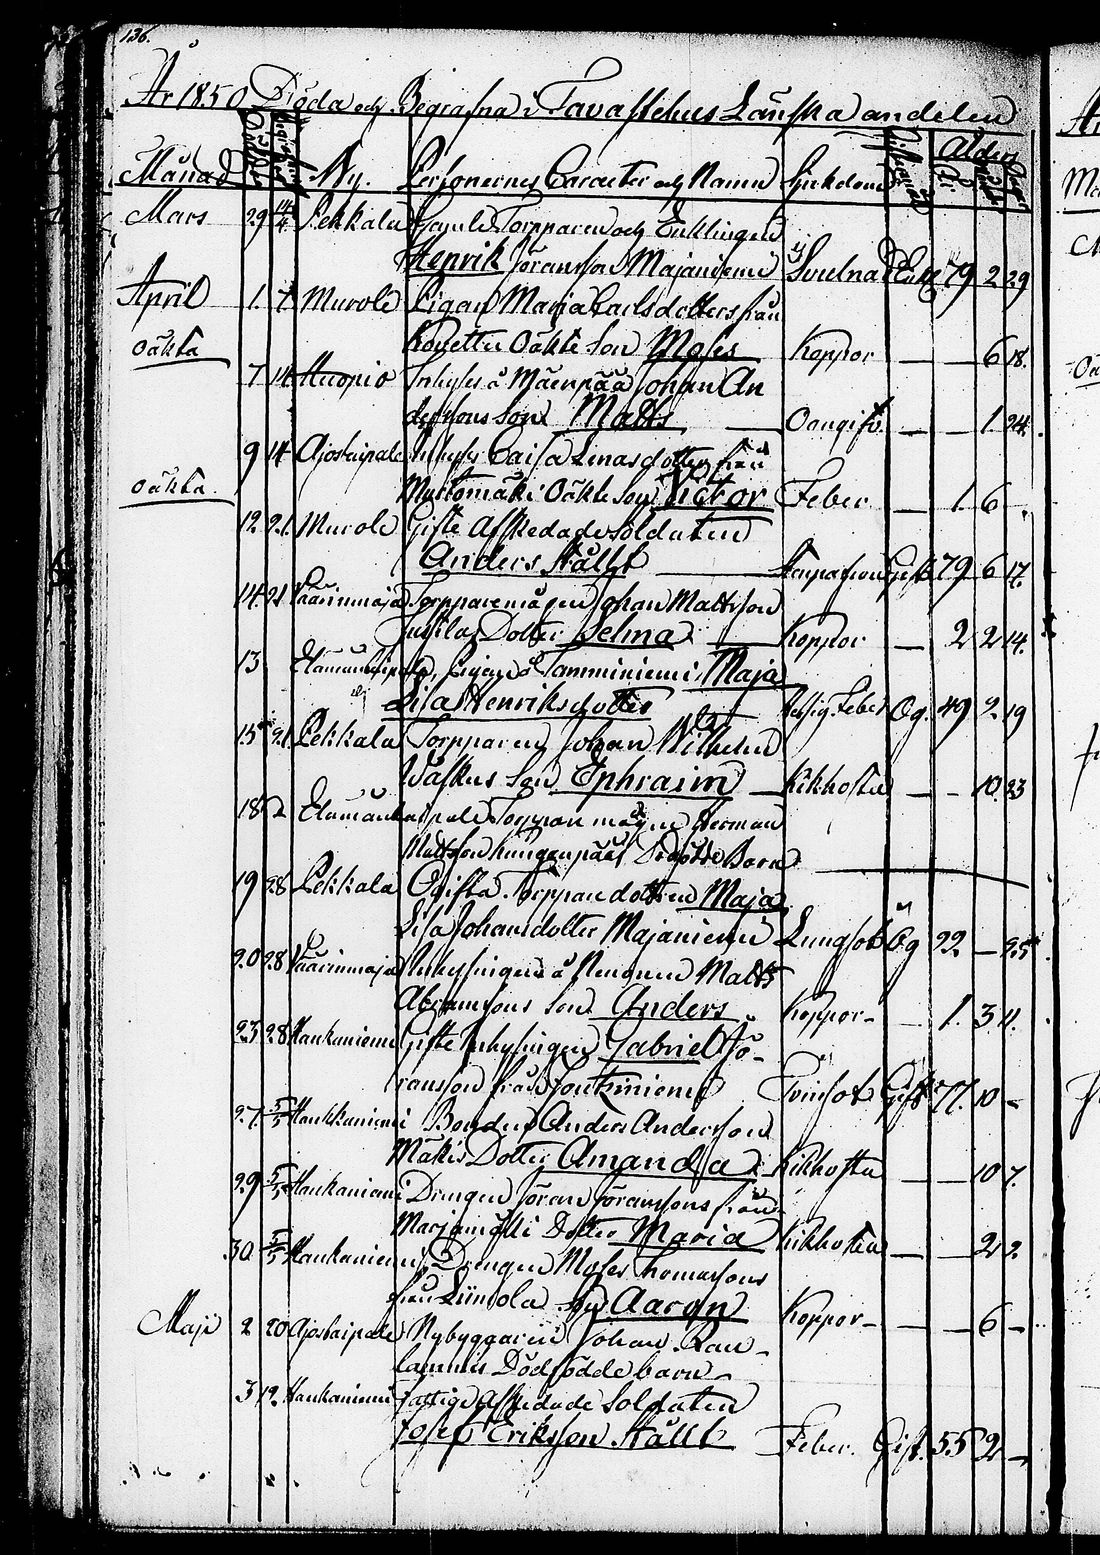 136.
År 1850 Döda och Begrafna i Tavastehus Länska andelen
Månad Döde Begrafne By. Personernes Caracter och Namn Sjukdom Ålder År
Mars 29 14/4 Pekkala Gamle Torpparen och Enklingen
Henrik Jöransson Majaniemi Svulnad Enkl 79 2 29
April 1. 7 Murole Pigan Maria Carlsdotters från
oäkta Rouettu Oäkte Son Moses Koppor — — 6 18.
7 14 Kuopio Inhyses å Mäenpää Johan An
derssons Son Matts Oangifv. — — 1 24.
9 14 Ajostaipale Inhyses Caisa Linasdotter från
oäkta. Mustomäki Oäkte Son Victor Feber — 1. 6 -
12 21. Murole Gifte Afskedade Soldaten
Anders Stållt Gift 79 6 17.
14. 21 Väärinmaja Torpparemågen Johan Mattsson
Jussilas Dotter Selma Koppor — 2 2 14.
13 Tamminiemi Maja
Lisa Henriksdotter Feber Og. 49 2 19
15 21 Pekkala Torpparen Johan Wilhelm
Son Ephraim Kikhosta — — 10. 23
18 Torppare mågen Herman
Mattsson Dödfödde Barn
19 28 Pekkala Ogifta Torppare dottren Maja
Lisa Johansdotter Majaniemi Lungsot Og 22 — 25
20 28 Väärinmaja Inhysingen å Matts
Abramssons Son Anders Koppor — 1. 3 11.
23 28 Haukaniemi Gifte Inhysingen Gabriel Jö-
ransson från Tvinsot Gift 77. 10 -
27. 5/5 Haukkaniemi Bonden Anders Andersson
Mäkis Dotter Amanda Kikhosta — — 10 7.
29 5/5 Haukaniemi Drengen Jöran Jöranssons från
Marjamäki Dotter Maria Kikhosta — — 2 2
30 5/5 Haukaniemi Drengen Moses Thomassons
från Liinsola Son Aaron Koppor — — 6 -
Maji 2 20 Ajostaipale Nybyggaren Johan Rau-
lammis Dödfödde barn
3 12. Haukaniemi Fattige Afskedade Soldaten
Josef Eriksson Stållt Feber. Gift. 55 2 -